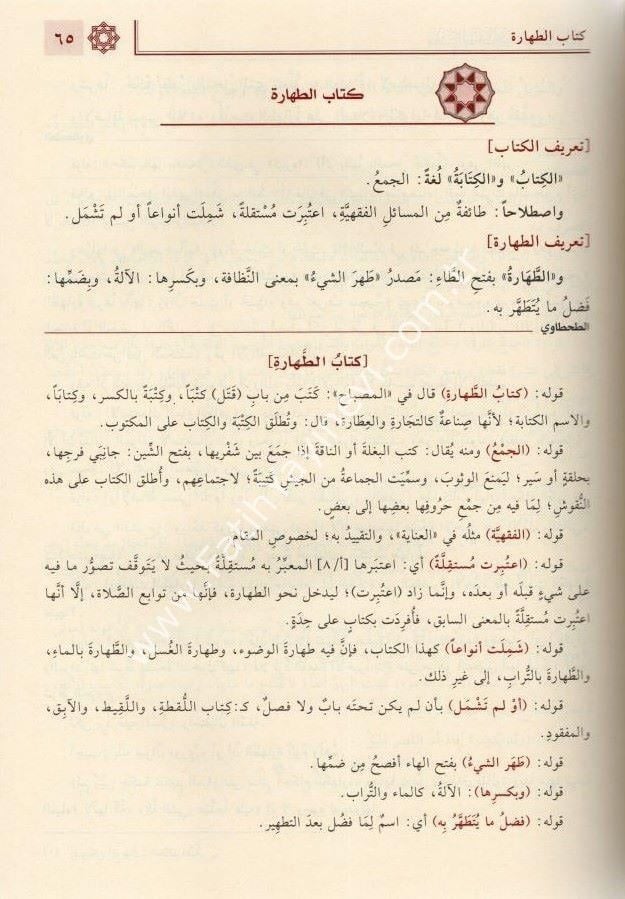 كتاب الطهارة
٦٥
كتاب الطهارة
[تعريف الكتاب]
«الكِتابُ» و«الكِتَابَةُ» لُغةً: الجمعُ.
واصطلاحاً: طائفةٌ مِن المسائلِ الفقهيَّةِ، اعتُبِرَت مُسْتقلةً، شَمِلَت أنواعاً أو لم تَشْمَل.
[تعريف الطهارة]
و«الطَّهَارَةُ» بفتحِ الطَّاءِ: مَصدرُ «طَهرَ الشيءُ» بمعنى النَّظافة، وبكَسرِها: الآلةُ، وبِضَمِّها:
فَضلُ ما يُتَطَهَّر به.
الطحطاوي
[كتابُ الطَّهارةِ]
قوله: (كتابُ الطَّهارةِ) قال في «المصباح»: كَتَبَ مِن بابِ (قَتَلَ) كَتْباً، وكِتْبَةً بالكسرِ، وكِتاباً،
والاسم الكتابة؛ لأنَّها صِناعةٌ كالتجَارةِ والعِطَارة، قال: وتُطلَق الكِتْبَة والكِتاب على المكتوب.
قوله: (الجمْعُ) ومنه يُقال: كتب البغلةَ أو الناقةَ إذا جمَعَ بين شَفْريها، بفتح الشِّين: جانِبَي فرجِها،
بحلقةٍ أو سَير؛ ليَمنعَ الوثوبَ، وسمِّيَت الجماعةُ من الجيشِ كَتِيبَةً؛ لاجتماعِهم، وأُطلق الكتاب على هذه
النُّقوشِ؛ لِمَا فيه مِن جمْعِ حُروفِها بعضِها إلى بعضٍ.
قوله: (الفقهيَّة) مثلُه في «العناية»، والتقييدُ به؛ لخصوصِ المقام.
قوله: (اعتُبِرت مُستقِلَّةً) أي: اعتبَرها [أ/٨] المعبِّرُ به مُستقِلَّةً بحيثُ لا يَتوقَّف تصوُّر ما فيه
على شيءٍ قبلَه أو بعدَه، وإنَّما زاد (اعتُبِرت)؛ ليدخل نحو الطهارة، فإنَّها من توابع الصَّلاة، إلَّا أنَّها
اعتبرت مُستقِلَّةً بالمعنى السابق، فأُفرِدَت بكتابٍ على حِدَةٍ.
قوله: (شَمِلَت أنواعاً) كهذا الكتاب، فإنَّ فيه طهارةَ الوضوء، وطهارةَ الغُسل، والطَّهارةَ بالماءِ،
والطَّهارةَ بالتُّرابِ، إلى غيرِ ذلك.
قوله: (أوْ لم تَشْمَل) بأن لم يكن تحتَه بابٌ ولا فصلٌ، كـ: كِتاب اللُّقطةِ، واللَّقيطِ، والآبِق،
والمفقودِ.
قوله: (طَهَر الشيءُ) بفتح الهاءِ أفصحُ مِن ضمِّها.
قوله: (وبكسرِها): الآلةُ، كالماء والتُّراب.
قوله: (فضلُ ما يُتَطَهَّرُ به) أي: اسمٌ لِمَا فضُل بعدَ التطهيرِ.